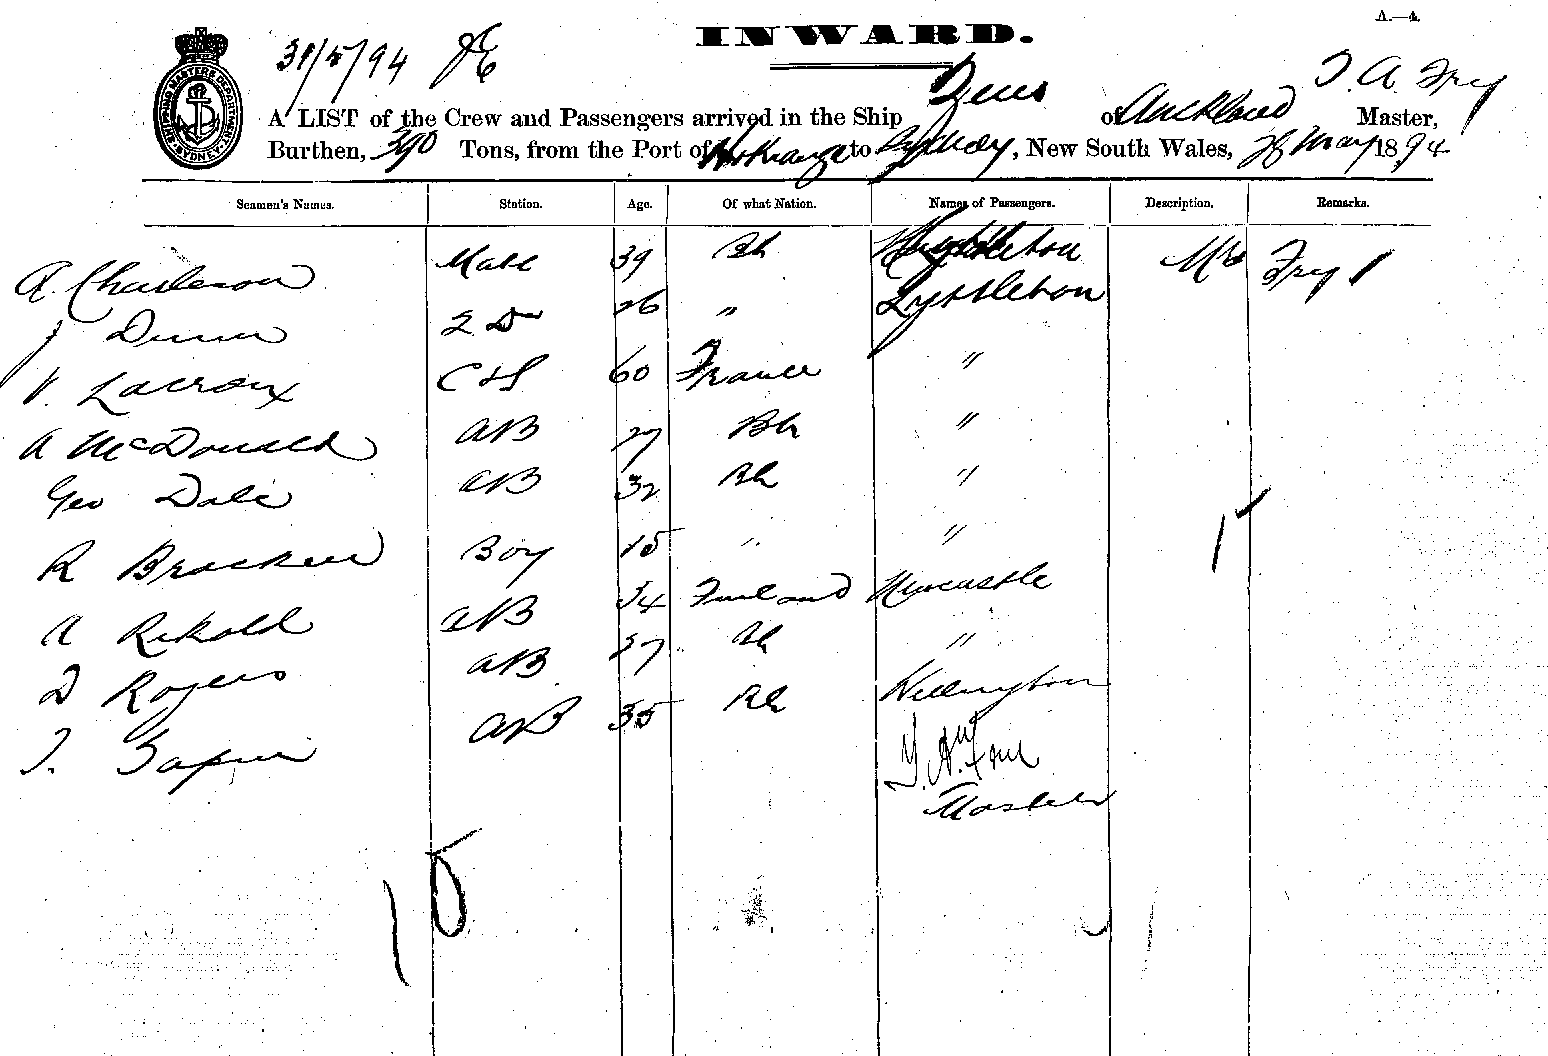 A.—4.
INWARD.
31/5/94
Zeus
T. A. Fry
A LIST of the Crew and Passengers arrived in the Ship Zeus of Auckland Master,
Burthen, 390 Tons, from the Port of Hokianga to Sydney, New South Wales, 28 May 1894
SHIPPING MASTERS DEPARTMENT SYDNEY
Seamen's Names. Station. Age. Of what Nation. Names of Passengers. Description. Remarks.
A. Charleson Mate 39 Bh Lyttleton Mrs Fry 1
J Dunn 2 Do 26 " Lyttleton
V. Lacroix C & S 60 France "
A McDonald AB 27 Bh "
Geo Dale AB 32 Bh "
R Bracken Boy 15 " "
A Rekold AB 34 Finland Newcastle
D Rogers AB 37 Bh "
J. AB 35 Bh Wellington
T. A. Fry
Master
1
10